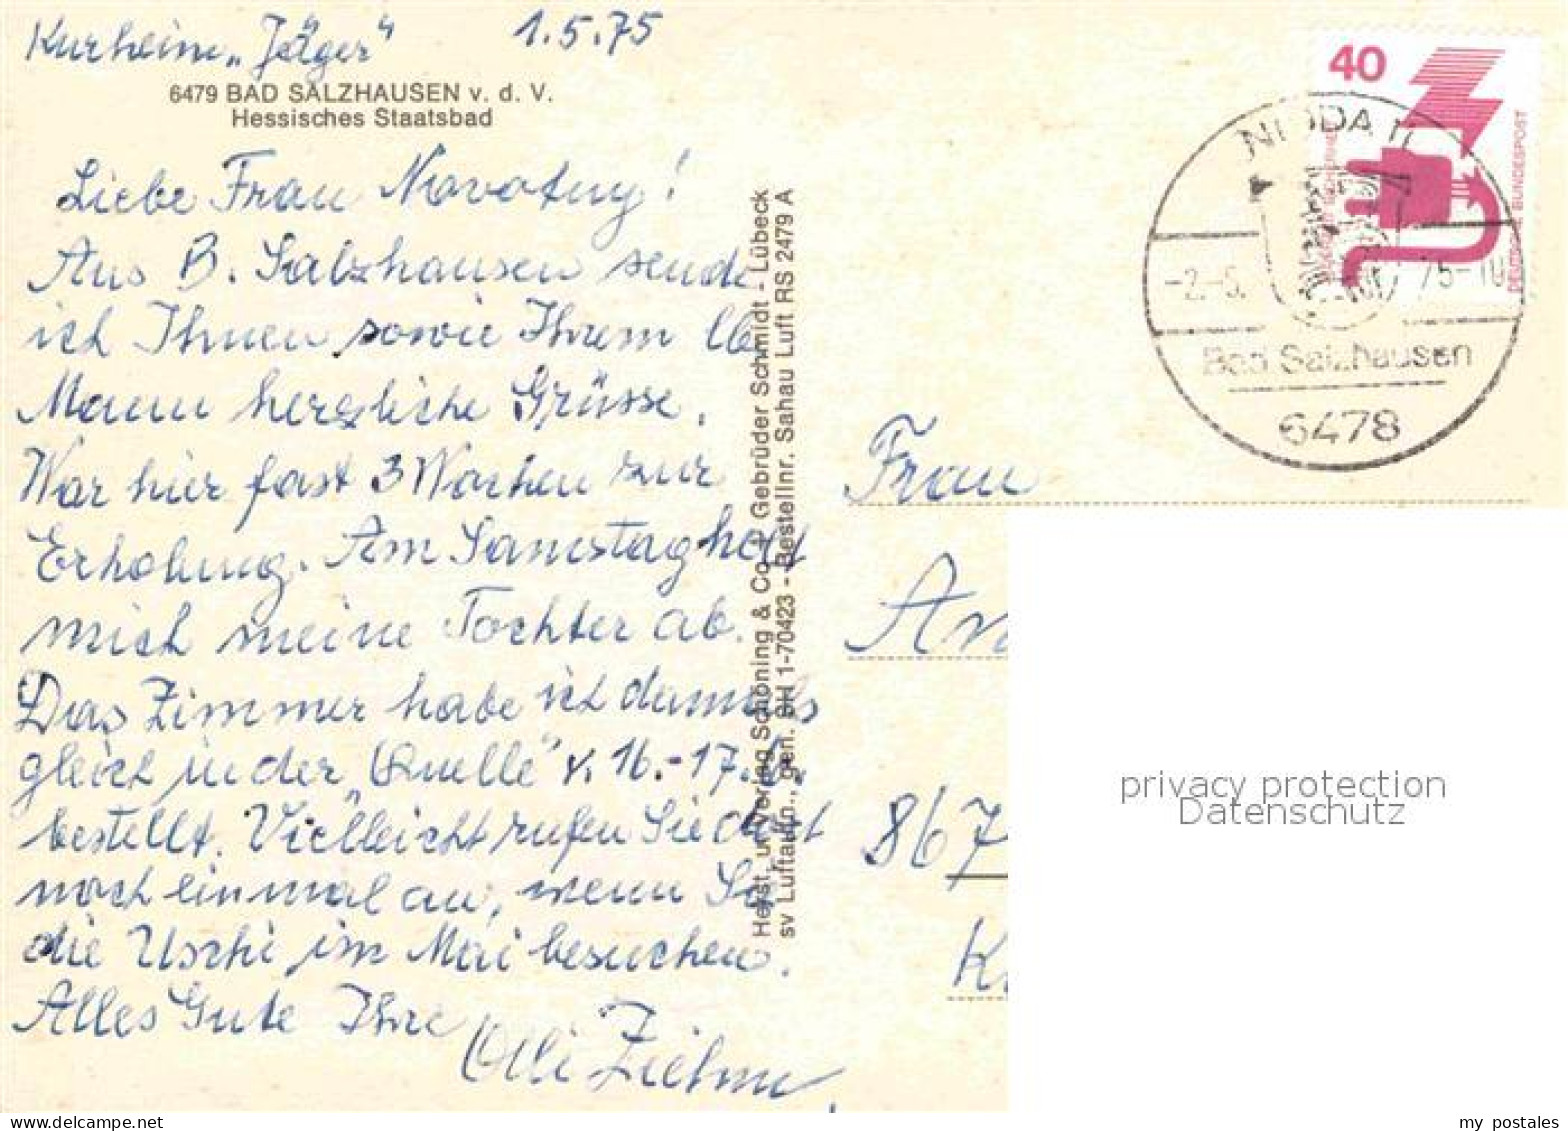 Kurheim „Jäger“ 1.5.75
6479 BAD SALZHAUSEN v. d. V.
Hessisches Staatsbad
Liebe Frau Novotny!
Aus B. Salzhausen sende
ich Ihnen sowie Ihrem lb
Mann herzliche Grüsse.
War hier fast 3 Wochen zur
Erholung. Am Samstag holt
mich meine Tochter ab.
Das Zimmer habe ich damals
gleich in der „Quelle“ v. 16.-17.6.
bestellt. Vielleicht rufen Sie dort
noch einmal an, wenn Sie
die Uschi im Mai besuchen.
Alles Gute Ihre
Olli Ziehm
Herst. u. Verlag Schöning & Co + Gebrüder Schmidt - Lübeck
sv Luftaufn., gen. SH 1-70423 - Bestellnr. Sahau Luft RS 2479 A
40
DEUTSCHE BUNDESPOST
NIDDA
-2.-5. 75-10
Bad Salzhausen
6478
Frau
An
867
K
privacy protection
Datenschutz
my postales